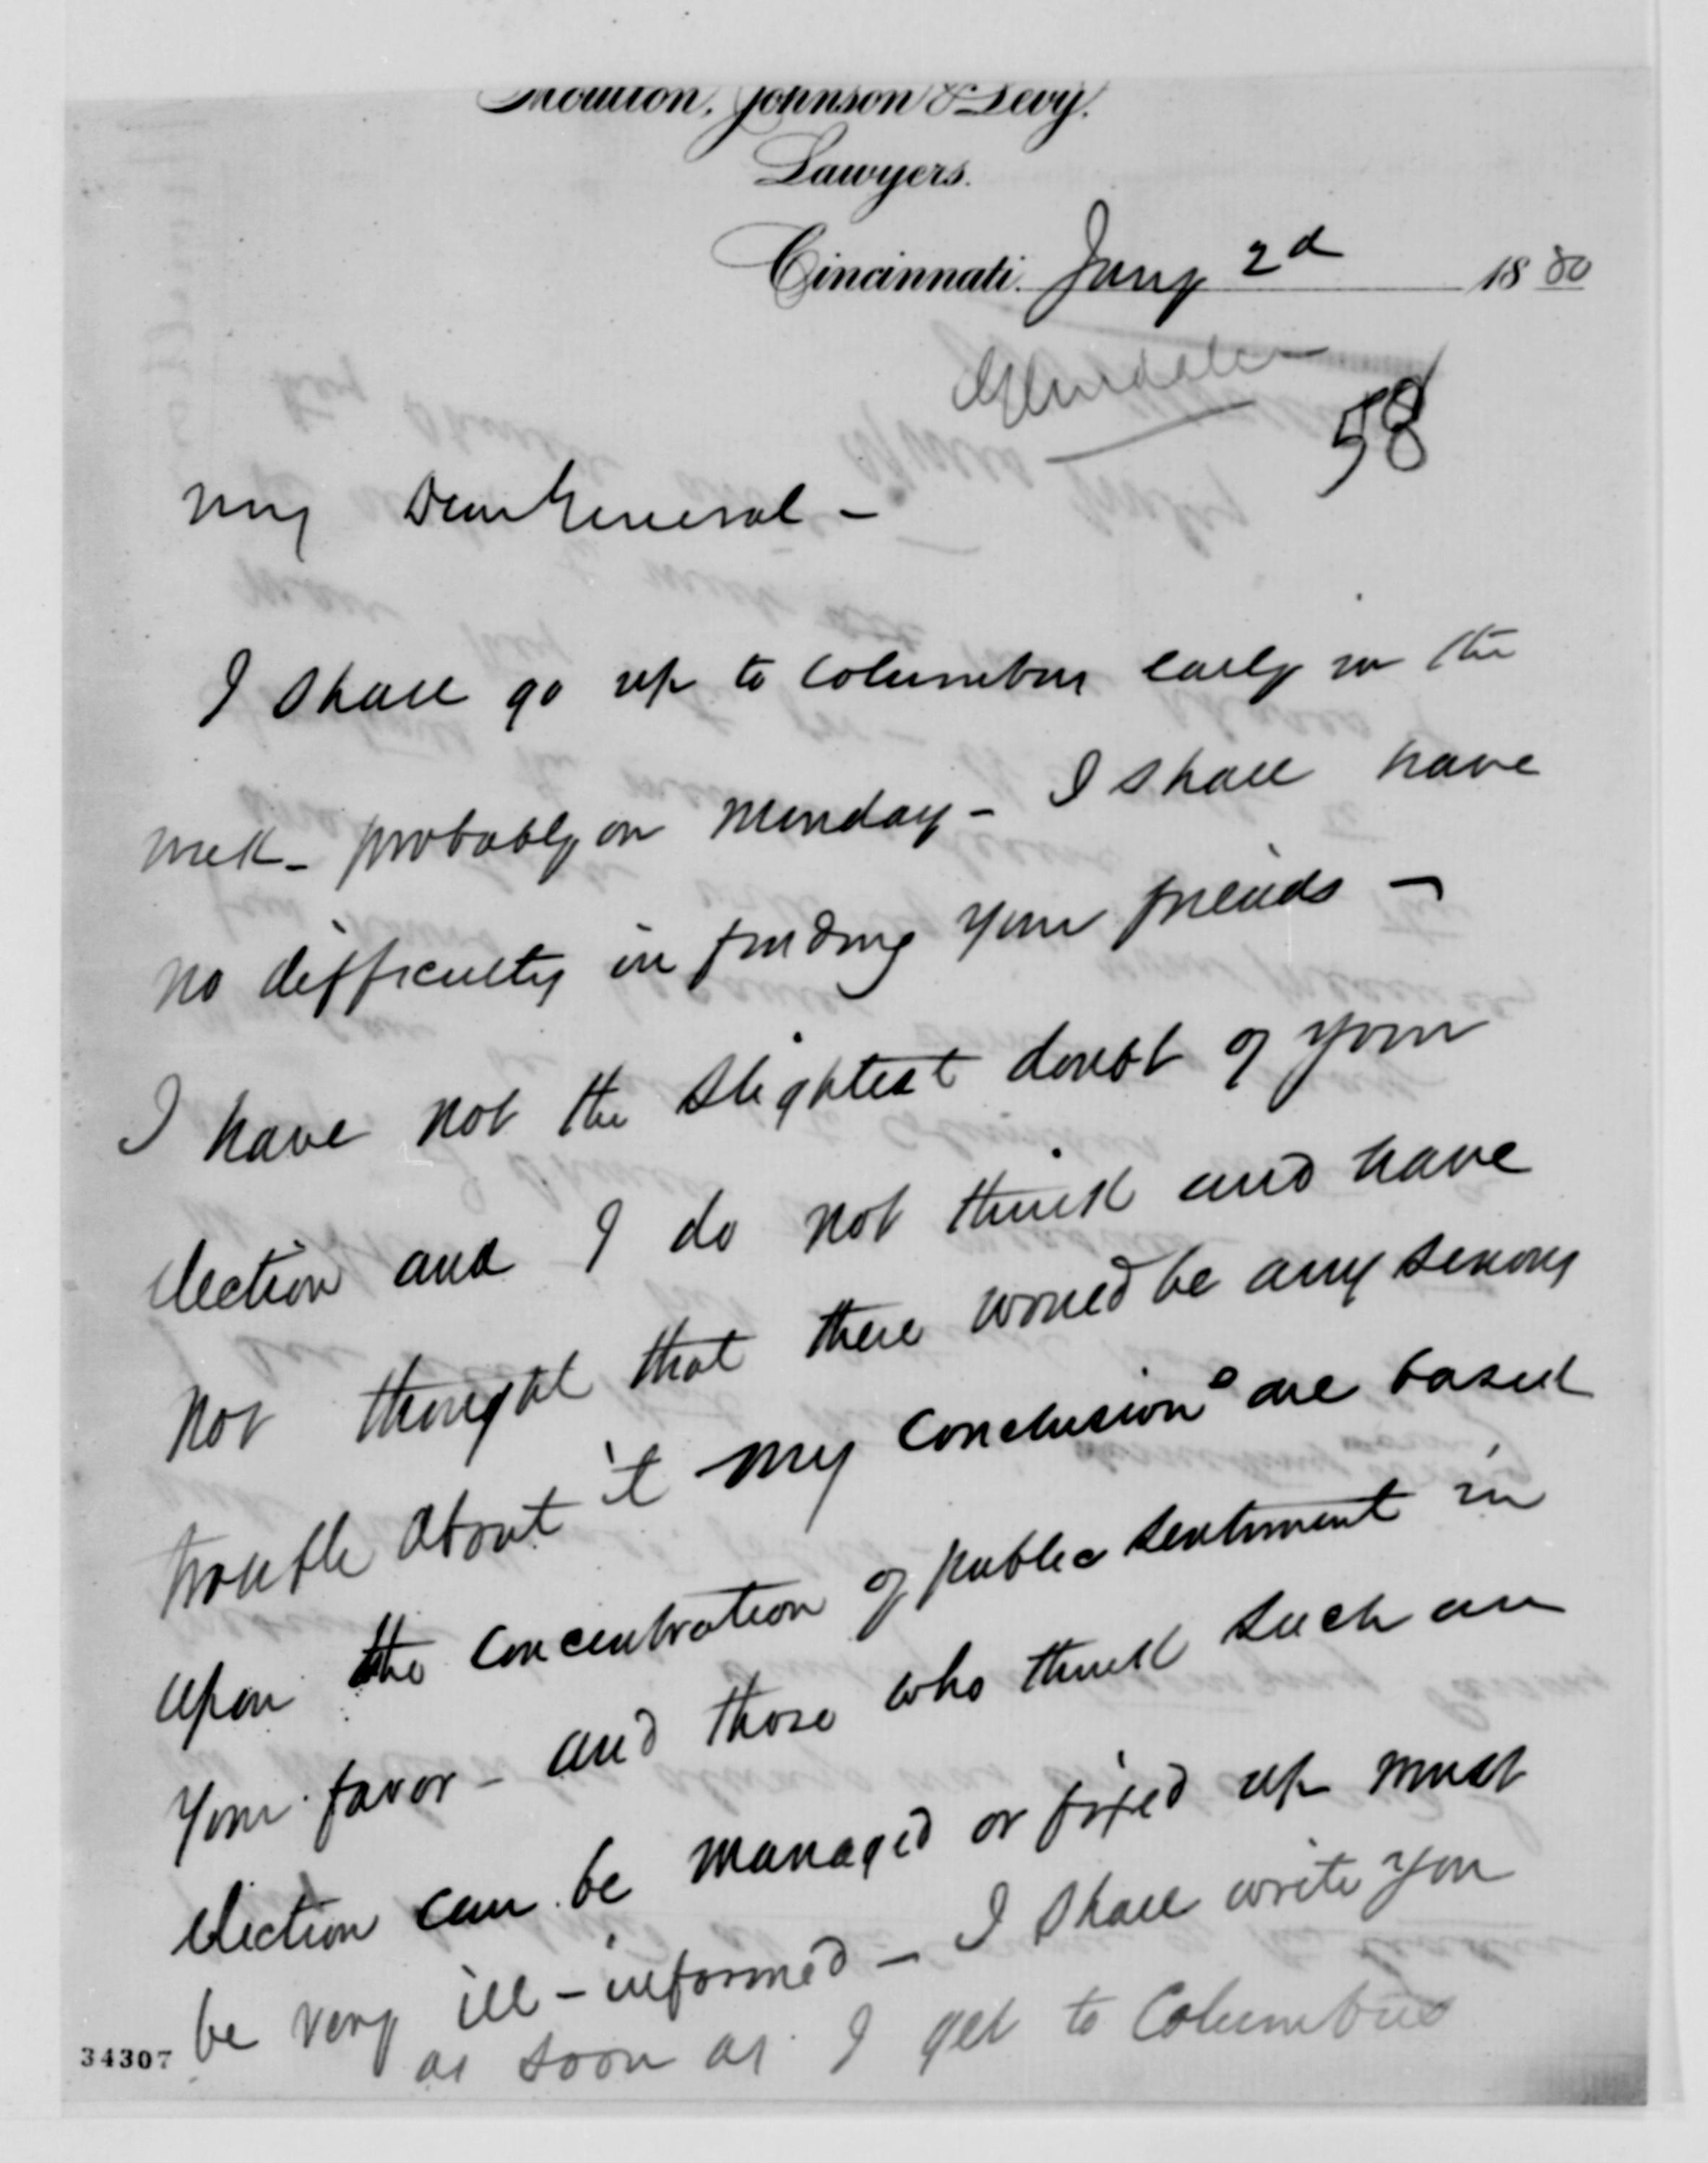 Moulton, Johnson & Levy.
Lawyers.
Cincinnati. Jany 2d 1880
Glendale
58
My Dear General -
I shall go up to Columbus early in the
week - probably on Monday - I shall have
no difficulty in finding your friends -
I have not the slightest doubt of your
election and I do not think and have
not thought that there would be any serious
trouble about it my conclusions are based
upon the concentration of public sentiment in
your favor - and those who think such an
election can be managed or fixed up must
be very ill-informed - I shall write you
as soon as I get to Columbus
34307